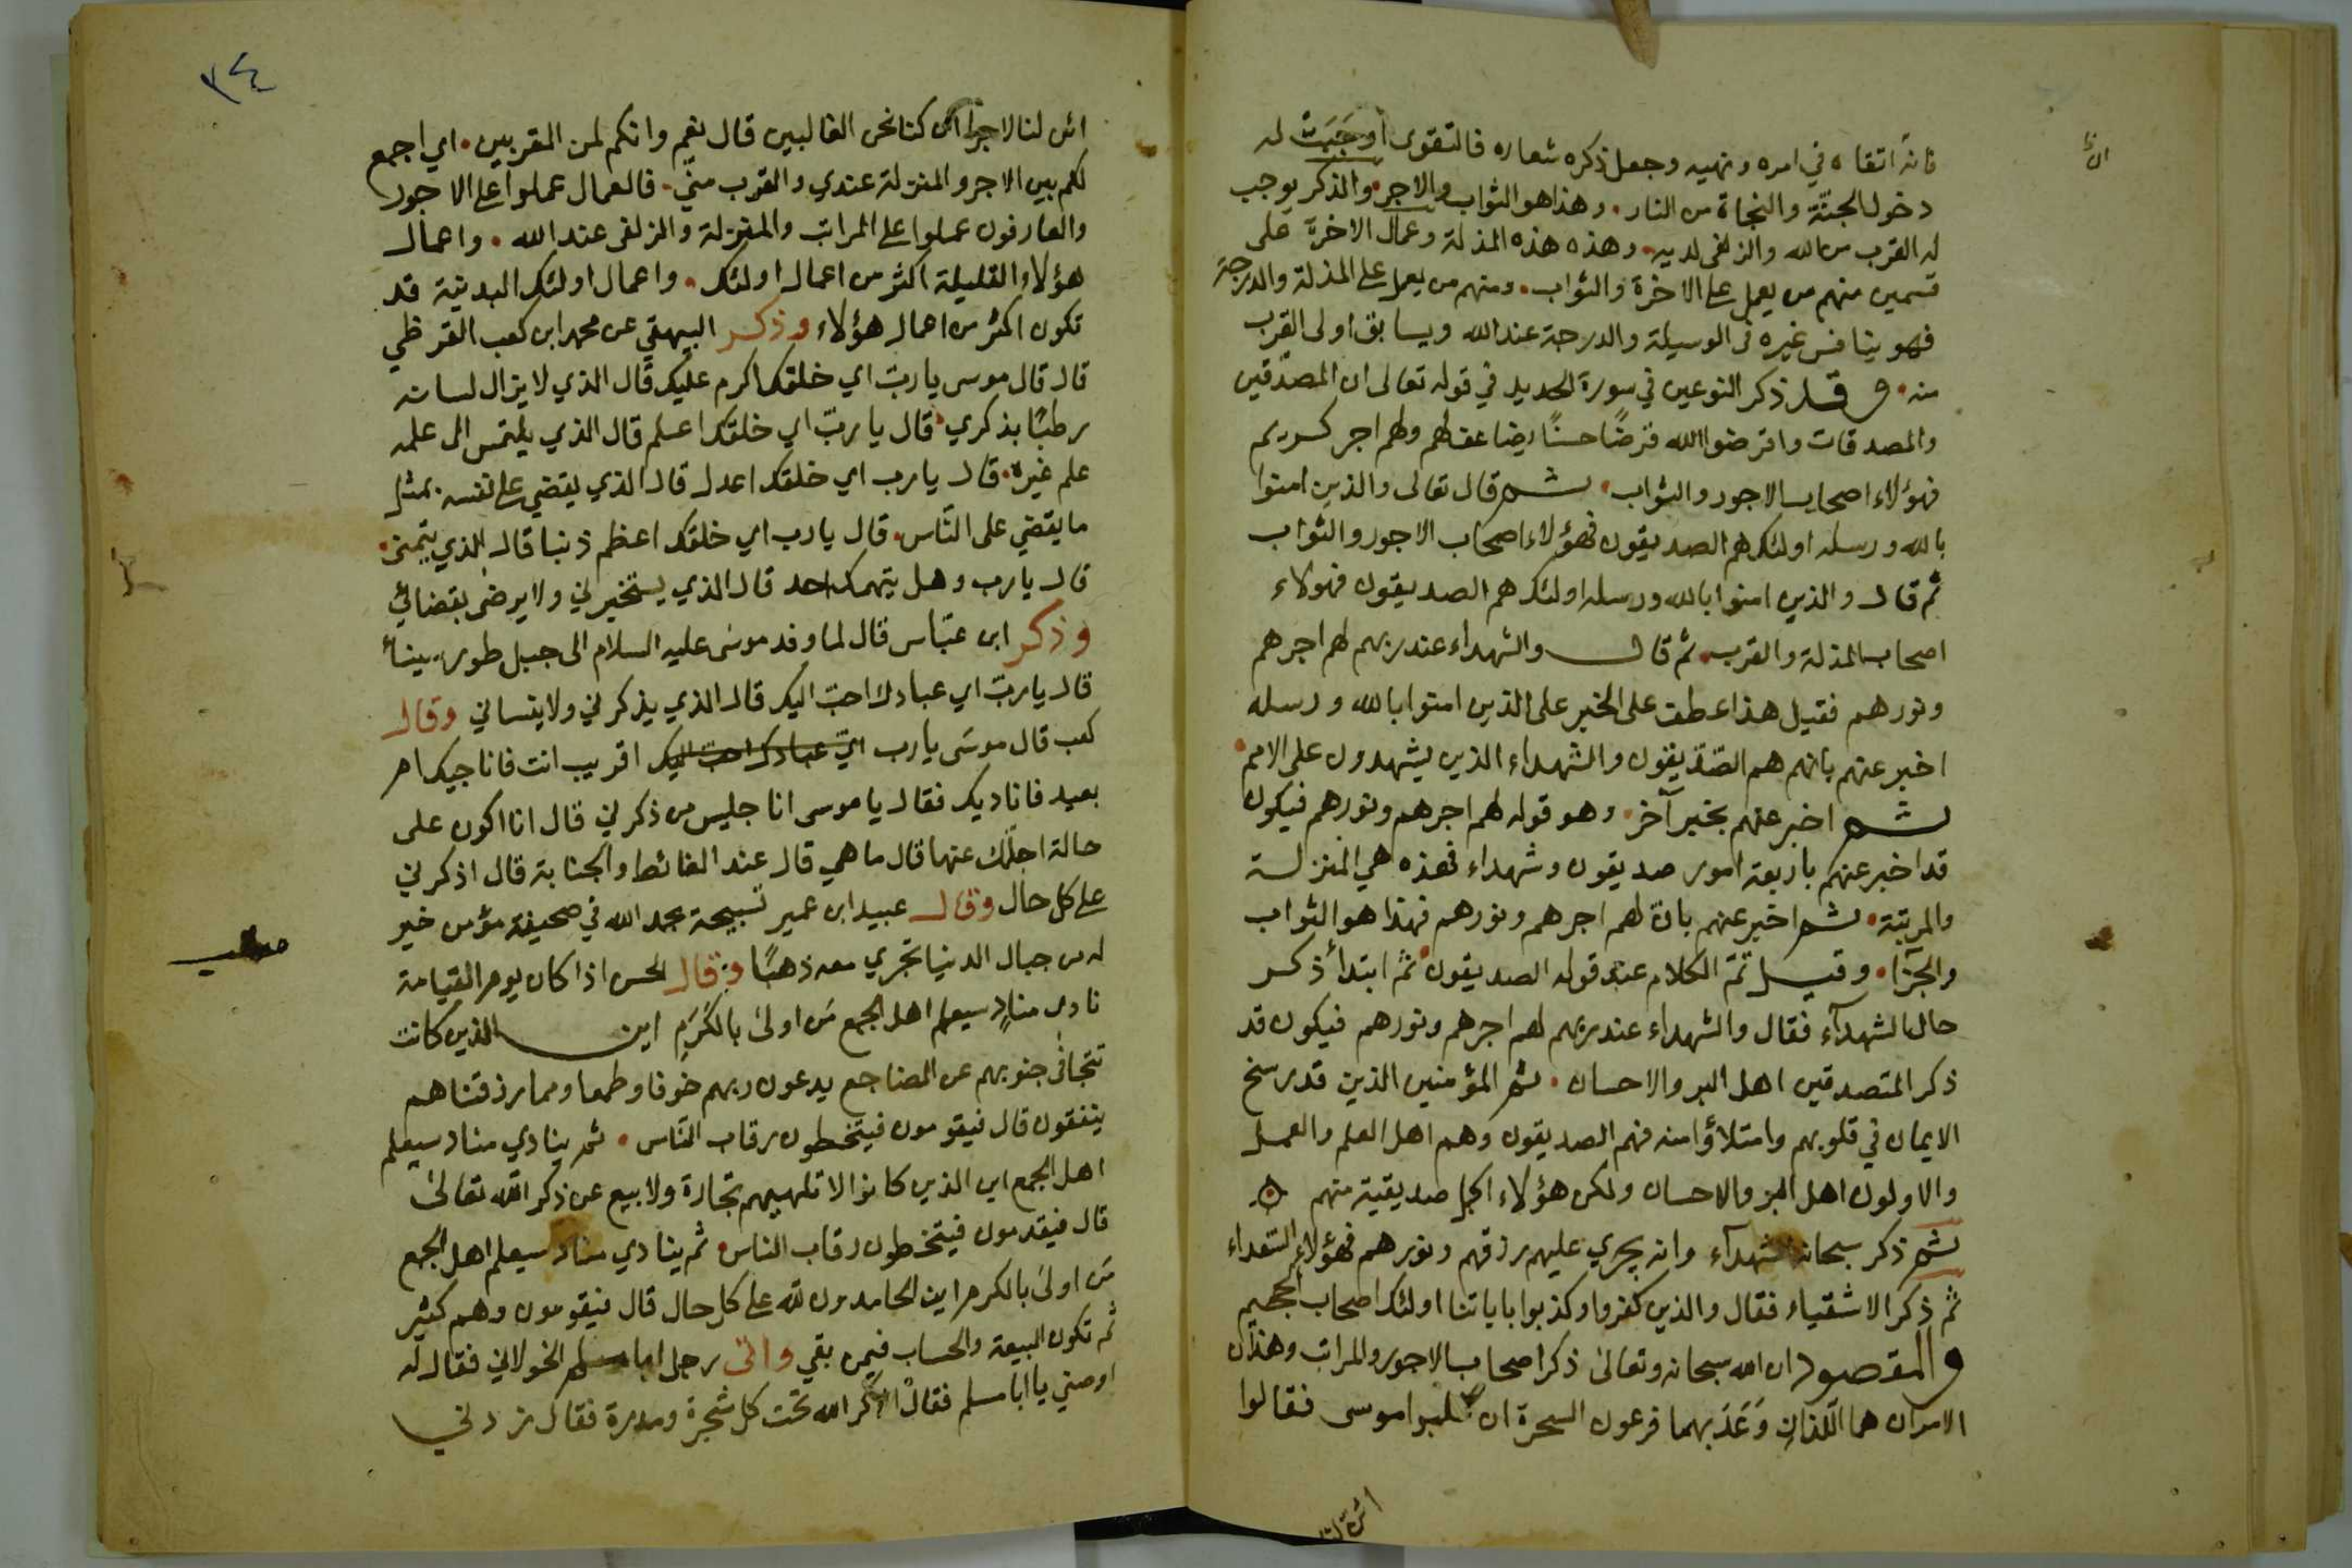 فانه اتقاه في امره ونهيه وجعل ذكره شعاره فالتقوى أوجَبَتْ له
دخول الجنّة والنجاة من النار. وهذا هو الثواب والاجر. والذكر يوجب
له القرب من الله والزلفى لديه. وهذه هذه المنزلة وعمال الاخرة على
قسمين منهم من يعمل على الاخرة والثواب. ومنهم من يعمل على المنزلة والدرجة
فهو ينافس غيره في الوسيلة والدرجة عند الله ويسابق اولى القرب
منه. وقد ذكر النوعين في سورة الحديد في قوله تعالى ان المصدّقين
والمصدقات واقرضوا الله قرضًا حسنًا يضاعف لهم ولهم اجر كريم
فهؤلاء اصحاب الاجور والثواب. ثم قال تعالى والذين امنوا
بالله ورسله اولئك هم الصديقون فهؤلاء اصحاب الاجور والثواب
ثم قال والذين امنوا بالله ورسله اولئك هم الصديقون فهولاء
اصحاب المنزلة والقرب. ثم قال والشهداء عند ربهم لهم اجرهم
ونورهم فقيل هذا عطف على الخبر على الذين امنوا بالله ورسله
اخبر عنهم بانهم هم الصّدّيقون والشهداء الذين يشهدون على الامم.
ثم اخبر عنهم بخبر آخر. وهو قوله لهم اجرهم ونورهم فيكون
قد اخبر عنهم باربعة امور صديقون وشهداء فهذه هي المنزلة
والمرتبة. ثم اخبر عنهم بان لهم اجرهم ونورهم فهذا هو الثواب
والجزا. وقيل تمّ الكلام عند قوله الصديقون. ثم ابتدأ ذكر
حال الشهدآء فقال والشهداء عند ربهم لهم اجرهم ونورهم فيكون قد
ذكر المتصدقين اهل البر والاحسان. ثم المؤمنين الذين قد رسخ
الايمان في قلوبهم وامتلأوا منه فهم الصديقون وهم اهل العلم والعمل
والاولون اهل البر والاحسان ولكن هؤلاء اكمل صديقية منهم
ثم ذكر سبحانه الشهدآء وانه يجري عليهم رزقهم ونورهم فهؤلاء السعداء
ثم ذكر الاشقياء فقال والذين كفروا وكذبوا باياتنا اولئك اصحاب الجحيم
والمقصود ان الله سبحانه وتعالى ذكر اصحاب الاجور والمراتب وهذان
الامران هما اللّذان وَعَدَ بهما فرعون السحرة ان غلبوا موسى فقالوا
ائن لنا
٣٤
ائن لنا لاجرا ان كنا نحن الغالبين قال نعم وانكم لمن المقربين. اي اجمع
لكم بين الاجر والمنزلة عندي والقرب مني. فالعمال عملوا على الاجور
والعارفون عملوا على المراتب والمنزلة والزلفى عند الله. واعمال
هؤلاء القليلة اكثر من اعمال اولئك. واعمال اولئك البدنية قد
تكون اكثر من اعمال هؤلاء وذكر البيهقي عن محمد ابن كعب القرظي
قال قال موسى يا ربّ اي خلقك اكرم عليك قال الذي لا يزال لسانه
رطبًا بذكري. قال يا ربّ اي خلقك اعلم قال الذي يلتمس الى علمه
علم غيره. قال يا رب اي خلقك اعدل قال الذي يقضي على نفسه بمثل
ما يقضي على النّاس. قال يا رب اي خلقك اعظم ذنبا قال الذي يتهمني.
قال يا رب وهل يتهمك احد قال الذي يستخيرني ولا يرضى بقضائي
وذكر ابن عبّاس قال لما وفد موسى عليه السلام الى جبل طور سينأ
قال يا ربّ اي عبادك احبّ اليك قال الذي يذكرني ولا ينساني وقال
كعب قال موسَى يا رب ايّ عبادك احبّ اليك اقريب انت فاناجيك ام
بعيد فاناديك فقال يا موسى انا جليس من ذكرني قال انا اكون على
حالة اجلّك عنها قال ما هي قال عند الغائط والجنابة قال اذكرني
على كل حال وقال عبيد ابن عمير تسبيحة بحمد الله في صحيفة مؤمن خير
له من جبال الدنيا تجري معه ذهبًا وقال الحسن اذا كان يوم القيامة
نادى منادٍ سيعلم اهل الجمع مَن اولىٰ بالكَرَمِ اين الذين كانت
تتجافىٰ جنوبهم عن المضاجع يدعون ربهم خوفا وطمعا ومما رزقناهم
ينفقون قال فيقومون فيتخطون رقاب النّاس. ثم ينادي مناد سيعلم
اهل الجمع اين الذين كانوا لا تلهيهم تجارة ولا بيع عن ذكر الله تعالىٰ
قال فيقدمون فيتخطون رقاب الناس. ثم ينادي مناد سيعلم اهل الجمع
مَن اولىٰ بالكرم اين الحامدون لله على كل حال قال فيقومون وهم كثير
ثم تكون البيعة والحساب فيمن بقي واتى رجل ابا مسلم الخولاني فقال له
اوصني يا ابا مسلم فقال اذكر الله تحت كل شجرة ومدرة فقال زدني